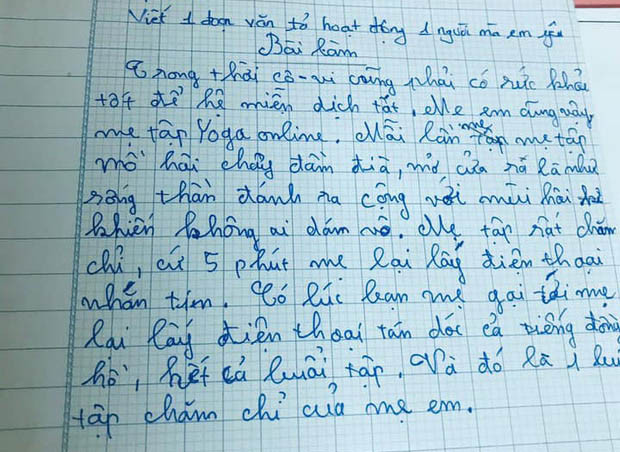 Viết 1 đoạn văn tả hoạt động 1 người mà em yêu
Bài làm
Trong thời cô-vi cũng phải có sức khỏe
tốt để hệ miễn dịch tốt. Mẹ em cũng vậy
mẹ tập Yoga online. Mỗi lần mẹ tập
mồ hôi chảy đầm đìa, mở cửa ra là như
sóng thần đánh ra cộng với mùi hôi
khiến không ai dám vô. Mẹ tập rất chăm
chỉ, cứ 5 phút mẹ lại lấy điện thoại
nhắn tin. Có lúc bạn mẹ gọi tới mẹ
lại lấy điện thoại tán dóc cả tiếng đồng
hồ, hết cả buổi tập. Và đó là 1 buổi
tập chăm chỉ của mẹ em.